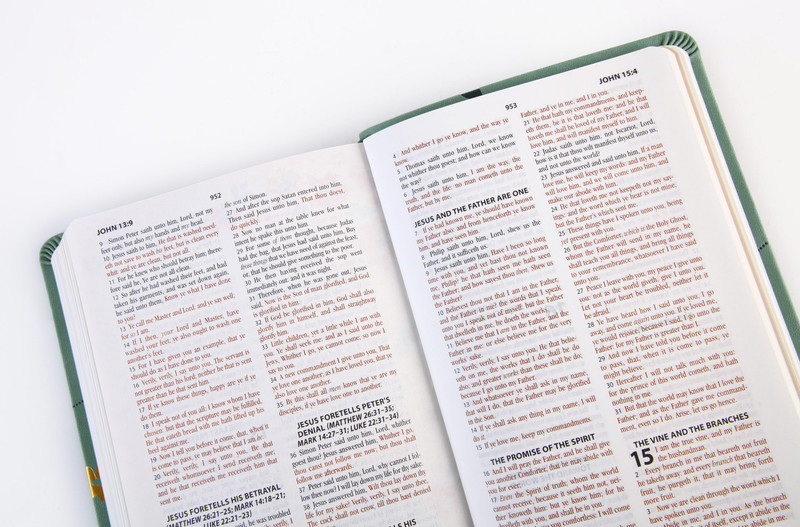 JOHN 13:9
952
9 Simon Peter saith unto him, Lord, not my
feet only, but also my hands and my head.
10 Jesus saith to him, He that is washed need-
eth not save to wash his feet, but is clean every
whit: and ye are clean, but not all.
11 For he knew who should betray him; there-
fore said he, Ye are not all clean.
12 So after he had washed their feet, and had
taken his garments, and was set down again,
he said unto them, Know ye what I have done
to you?
13 Ye call me Master and Lord: and ye say well;
for so I am.
14 If I then, your Lord and Master, have
washed your feet; ye also ought to wash one
another's feet.
15 For I have given you an example, that ye
should do as I have done to you.
16 Verily, verily, I say unto you, The servant is
not greater than his lord; neither he that is sent
greater than he that sent him.
17 If ye know these things, happy are ye if ye
do them.
18 I speak not of you all: I know whom I have
chosen: but that the scripture may be fulfilled,
He that eateth bread with me hath lifted up his
heel against me.
19 Now I tell you before it come, that, when it
is come to pass, ye may believe that I am he.
20 Verily, verily, I say unto you, He that
receiveth whomsoever I send receiveth me;
and he that receiveth me receiveth him that
sent me.
JESUS FORETELLS HIS BETRAYAL
(MATTHEW 26:21–25; MARK 14:18–21;
LUKE 22:21–23)
said, he was troubled
the son of Simon.
27 And after the sop Satan entered into him.
Then said Jesus unto him, That thou doest,
do quickly.
28 Now no man at the table knew for what
intent he spake this unto him.
29 For some of them thought, because Judas
had the bag, that Jesus had said unto him, Buy
those things that we have need of against the feast;
or, that he should give something to the poor.
30 He then having received the sop went
immediately out: and it was night.
31 Therefore, when he was gone out, Jesus
said, Now is the Son of man glorified, and God
is glorified in him.
32 If God be glorified in him, God shall also
glorify him in himself, and shall straightway
glorify him.
33 Little children, yet a little while I am with
you. Ye shall seek me: and as I said unto the
Jews, Whither I go, ye cannot come; so now I
say to you.
34 A new commandment I give unto you, That
ye love one another; as I have loved you, that ye
also love one another.
35 By this shall all men know that ye are my
disciples, if ye have love one to another.
JESUS FORETELLS PETER'S
DENIAL (MATTHEW 26:31–35;
MARK 14:27–31; LUKE 22:31–34)
36 Simon Peter said unto him, Lord, whither
goest thou? Jesus answered him, Whither I go,
thou canst not follow me now; but thou shalt
follow me afterwards.
37 Peter said unto him, Lord, why cannot I fol-
low thee now? I will lay down my life for thy sake.
38 Jesus answered him, Wilt thou lay down thy
life for my sake? Verily, verily, I say unto thee,
The cock shall not crow, till thou hast denied
953
JOHN 15:4
4 And whither I go ye know, and the way ye
know.
5 Thomas saith unto him, Lord, we know
not whither thou goest; and how can we know
the way?
6 Jesus saith unto him, I am the way, the
truth, and the life: no man cometh unto the
Father, but by me.
JESUS AND THE FATHER ARE ONE
7 If ye had known me, ye should have known
my Father also: and from henceforth ye know
him, and have seen him.
8 Philip saith unto him, Lord, shew us the
Father, and it sufficeth us.
9 Jesus saith unto him, Have I been so long
time with you, and yet hast thou not known
me, Philip? he that hath seen me hath seen
the Father; and how sayest thou then, Shew us
the Father?
10 Believest thou not that I am in the Father,
and the Father in me? the words that I speak
unto you I speak not of myself: but the Father
that dwelleth in me, he doeth the works.
11 Believe me that I am in the Father, and the
Father in me: or else believe me for the very
works' sake.
12 Verily, verily, I say unto you, He that believ-
eth on me, the works that I do shall he do
also; and greater works than these shall he do;
because I go unto my Father.
13 And whatsoever ye shall ask in my name,
that will I do, that the Father may be glorified
in the Son.
14 If ye shall ask any thing in my name, I will
do it.
15 If ye love me, keep my commandments.
THE PROMISE OF THE SPIRIT
16 And I will pray the Father, and he shall give
you another Comforter, that he may abide with
you for ever;
17 Even the Spirit of truth; whom the world
cannot receive, because it seeth him not, nei-
ther knoweth him: but ye know him; for he
dwelleth with you, and shall be in you.
Father, and ye in me, and I in you.
21 He that hath my commandments, and keep-
eth them, he it is that loveth me: and he that
loveth me shall be loved of my Father, and I will
love him, and will manifest myself to him.
22 Judas saith unto him, not Iscariot, Lord,
how is it that thou wilt manifest thyself unto us,
and not unto the world?
23 Jesus answered and said unto him, If a man
love me, he will keep my words: and my Father
will love him, and we will come unto him, and
make our abode with him.
24 He that loveth me not keepeth not my say-
ings: and the word which ye hear is not mine,
but the Father's which sent me.
25 These things have I spoken unto you, being
yet present with you.
26 But the Comforter, which is the Holy Ghost,
whom the Father will send in my name, he
shall teach you all things, and bring all things
to your remembrance, whatsoever I have said
unto you.
27 Peace I leave with you, my peace I give unto
you: not as the world giveth, give I unto you.
Let not your heart be troubled, neither let it
be afraid.
28 Ye have heard how I said unto you, I go
away, and come again unto you. If ye loved me,
ye would rejoice, because I said, I go unto the
Father: for my Father is greater than I.
29 And now I have told you before it come
to pass, that, when it is come to pass, ye
might believe.
30 Hereafter I will not talk much with you:
for the prince of this world cometh, and hath
nothing in me.
31 But that the world may know that I love the
Father; and as the Father gave me command-
ment, even so I do. Arise, let us go hence.
THE VINE AND THE BRANCHES
15 I am the true vine, and my Father is
the husbandman.
2 Every branch in me that beareth not fruit
he taketh away: and every branch that beareth
fruit, he purgeth it, that it may bring forth
more fruit.
3 Now ye are clean through the word which I
have spoken unto you.